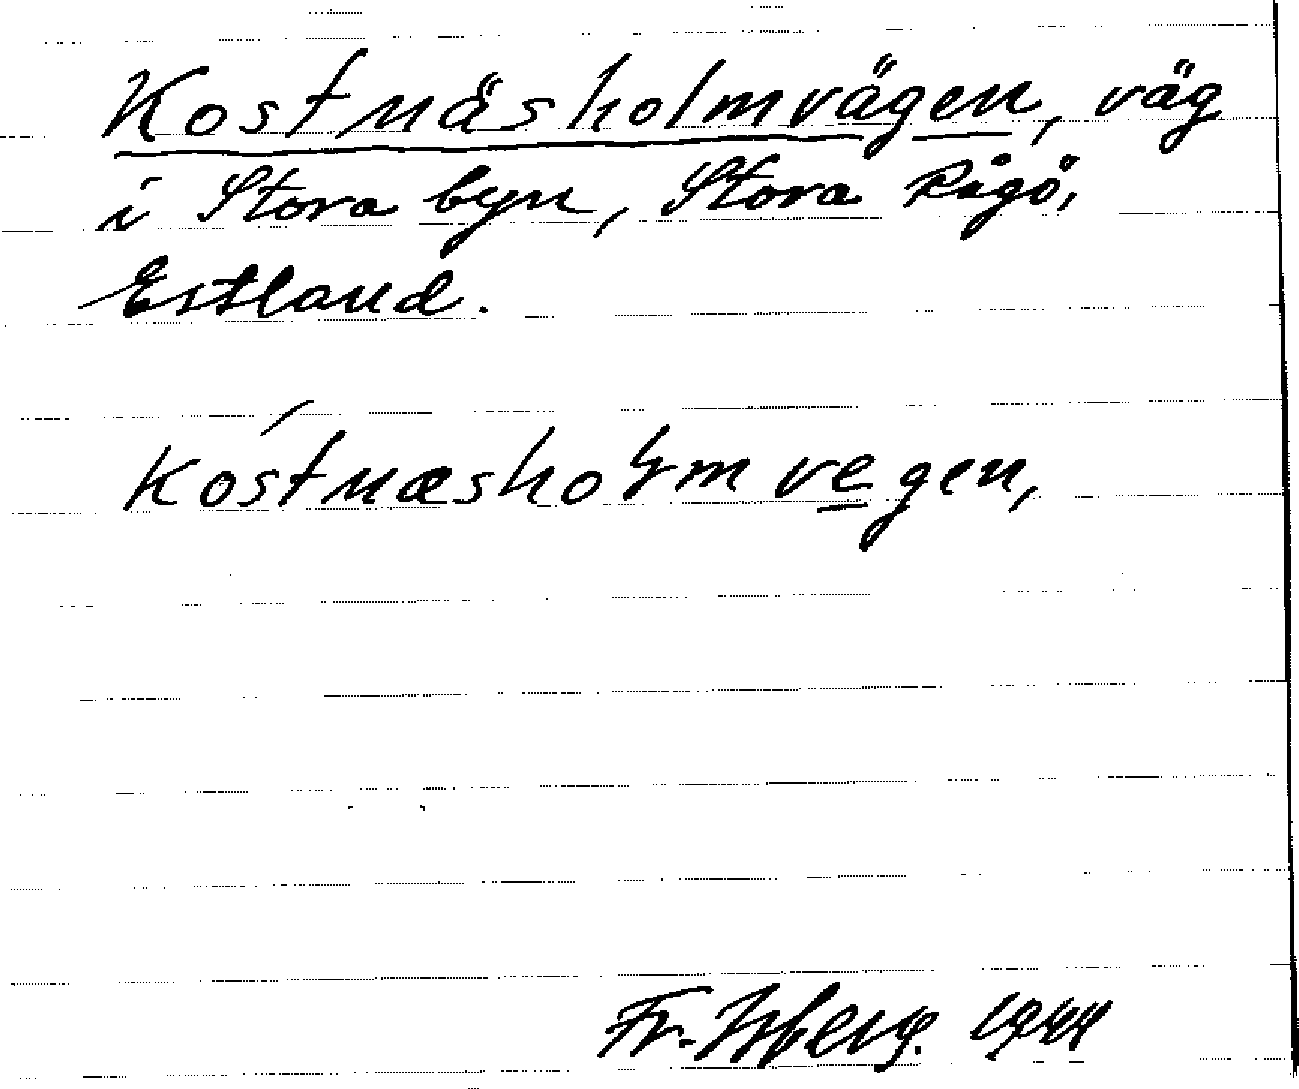 Kostnäsholmvägen, väg
i Stora byn, Stora Rågö,
Estland.
kóstnæshołmvegen,
Fr. 1944